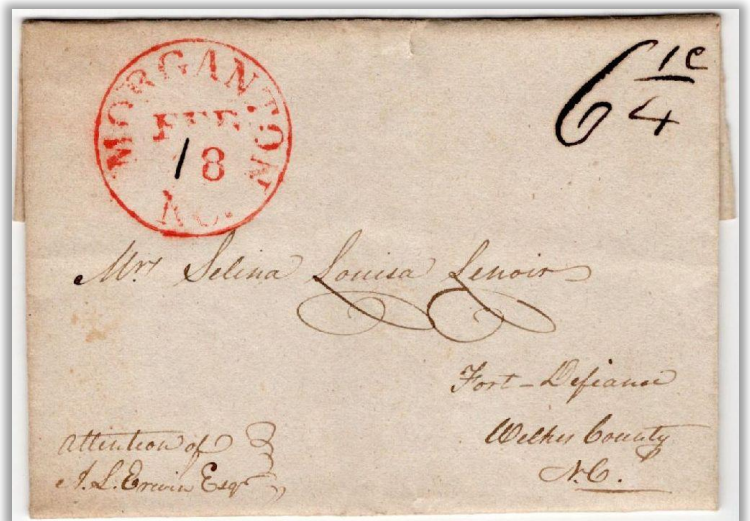 MORGANTON
FEB
18
N.C.
6 1/4 c
Mrs Selina Louisa Lenoir
Fort-Defiance
Wilkes County
N.C.
attention of
A. L. Erwin Esqr